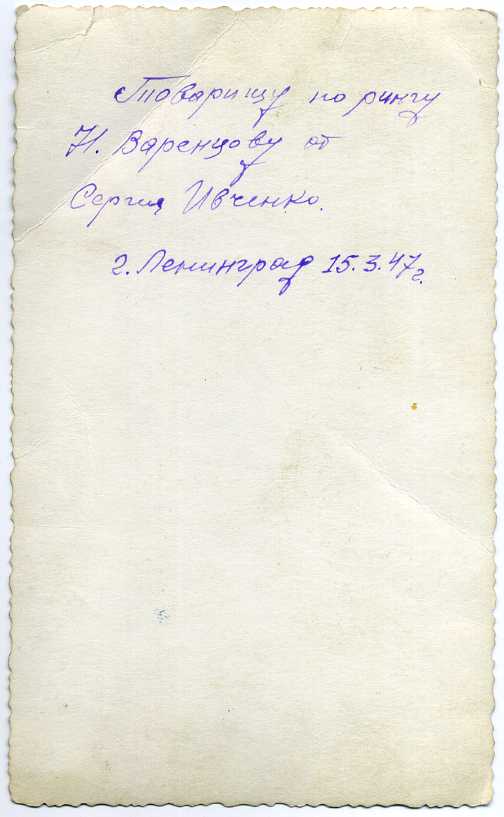 Товарищу по рингу
Н. Варенцову от
Сергия Ивченко.
г. Ленинград 15.3.47г.